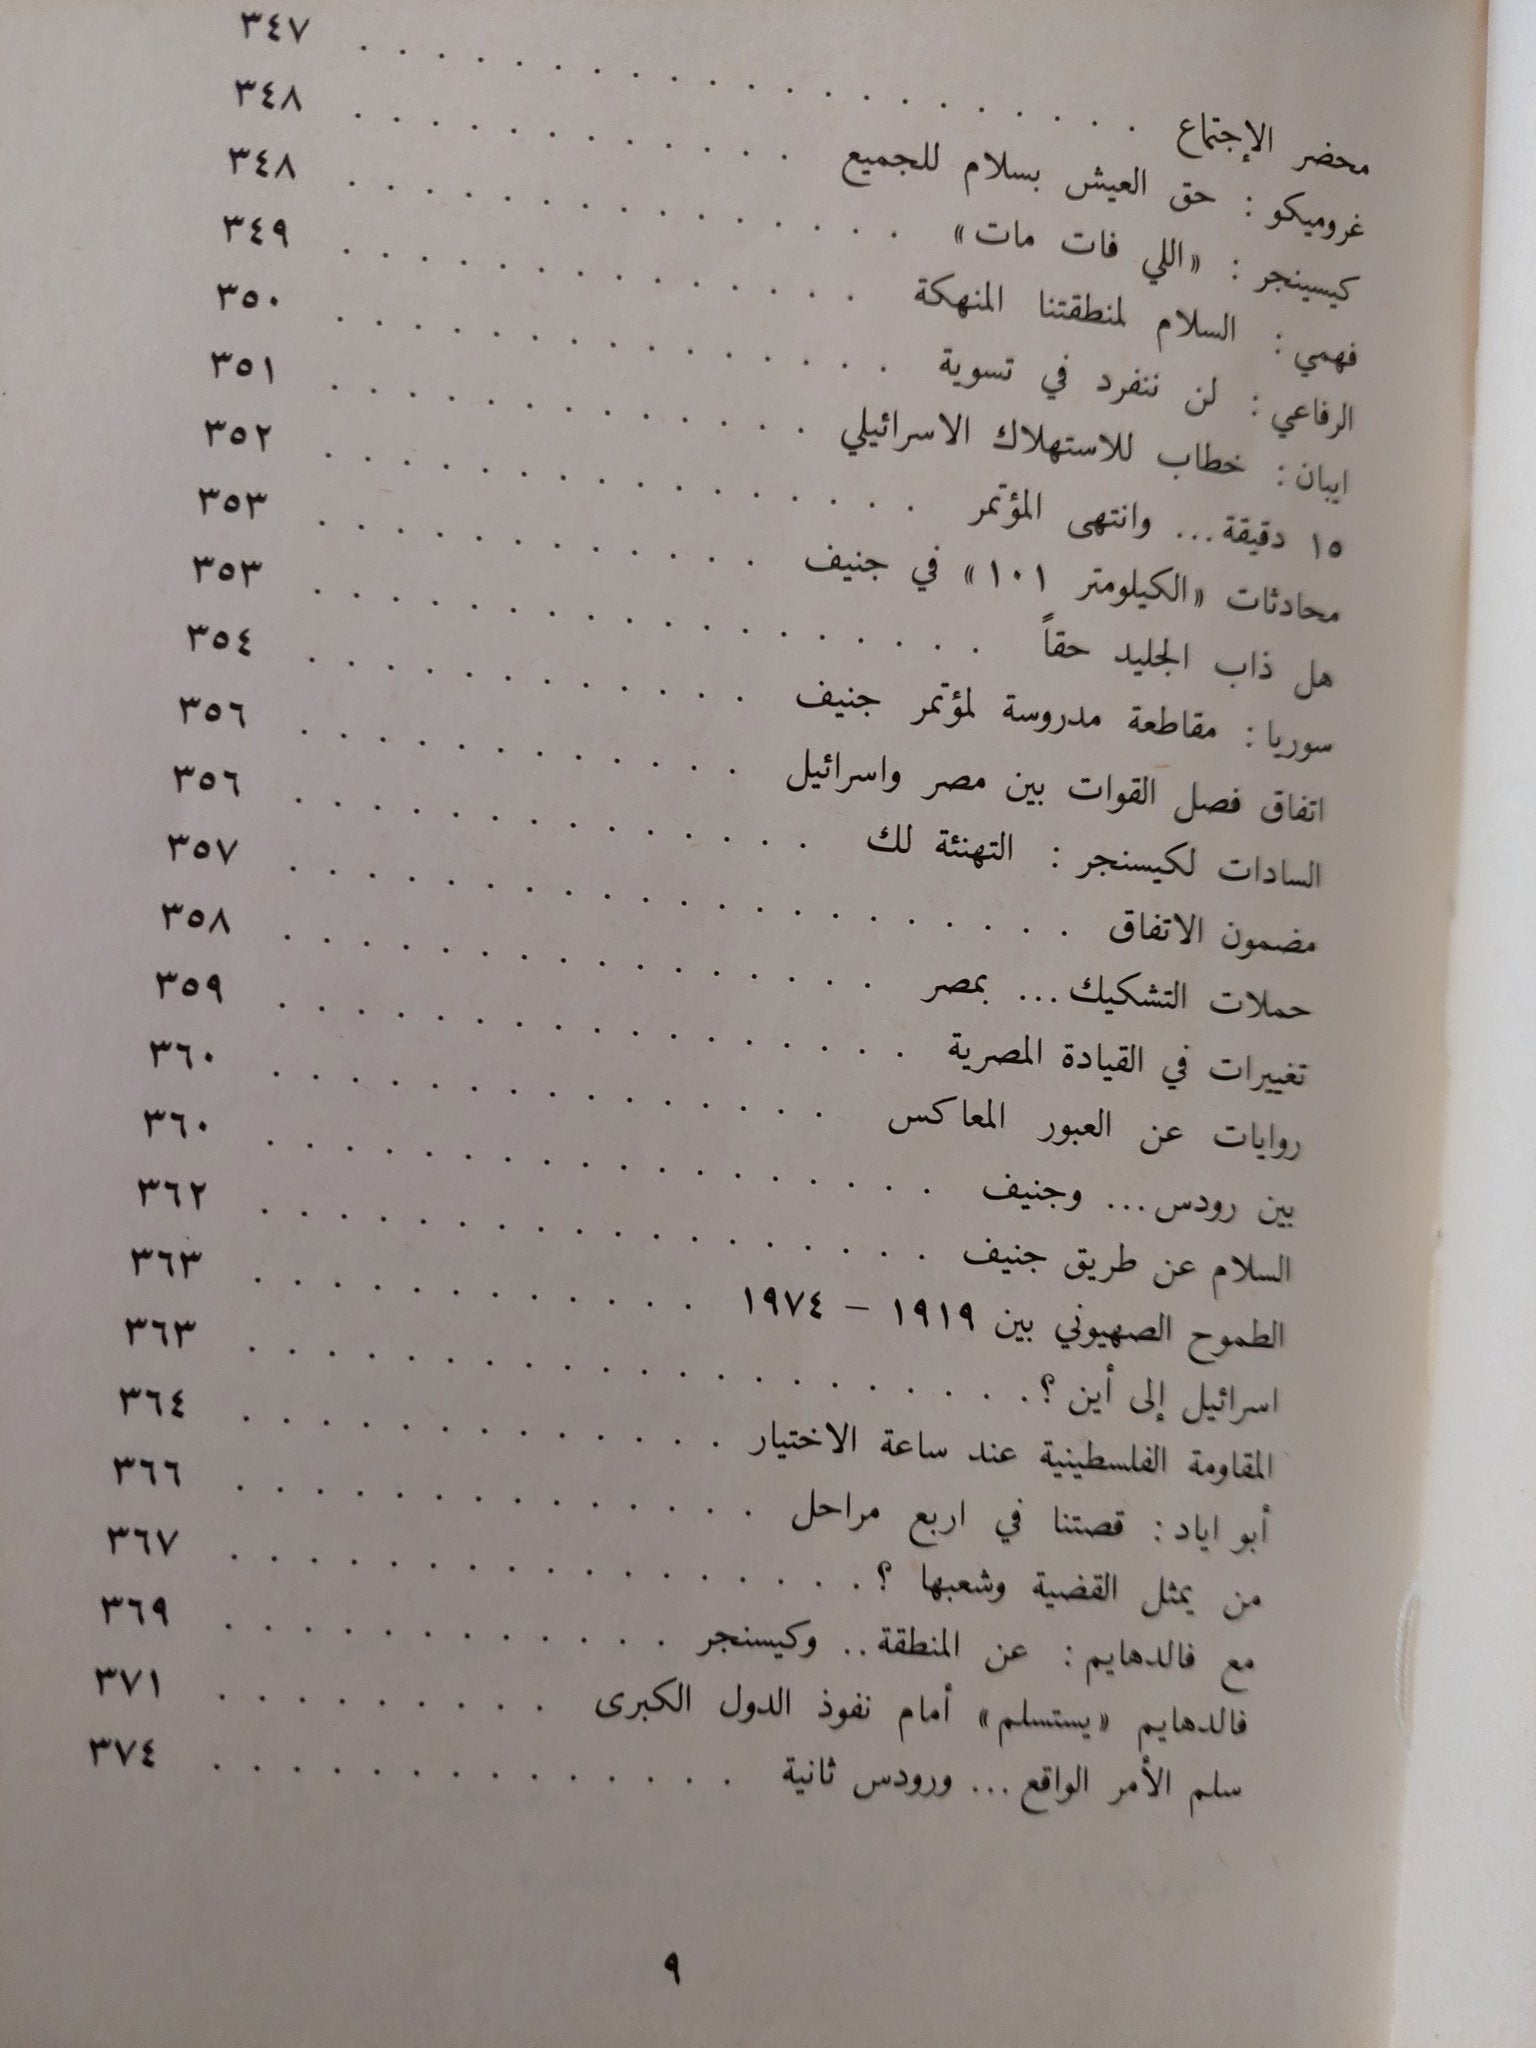 محضر الإجتماع . . . . . . . . . . ٣٤٧
غروميكو : حق العيش بسلام للجميع . . . . . . . . . . ٣٤٨
كيسينجر : «اللي فات مات» . . . . . . . . . . ٣٤٨
فهمي : السلام لمنطقتنا المنهكة . . . . . . . . . . ٣٤٩
الرفاعي : لن ننفرد في تسوية . . . . . . . . . . ٣٥٠
ايبان : خطاب للاستهلاك الاسرائيلي . . . . . . . . . . ٣٥١
١٥ دقيقة ... وانتهى المؤتمر . . . . . . . . . . ٣٥٢
محادثات «الكيلومتر ١٠١» في جنيف . . . . . . . . . . ٣٥٣
هل ذاب الجليد حقاً . . . . . . . . . . ٣٥٣
سوريا : مقاطعة مدروسة لمؤتمر جنيف . . . . . . . . . . ٣٥٤
اتفاق فصل القوات بين مصر واسرائيل . . . . . . . . . . ٣٥٦
السادات لكيسنجر : التهنئة لك . . . . . . . . . . ٣٥٦
مضمون الاتفاق . . . . . . . . . . ٣٥٧
حملات التشكيك ... بمصر . . . . . . . . . . ٣٥٨
تغييرات في القيادة المصرية . . . . . . . . . . ٣٥٩
روايات عن العبور المعاكس . . . . . . . . . . ٣٦٠
بين رودس ... وجنيف . . . . . . . . . . ٣٦٠
السلام عن طريق جنيف . . . . . . . . . . ٣٦٢
الطموح الصهيوني بين ١٩١٩ – ١٩٧٤ . . . . . . . . . . ٣٦٣
اسرائيل إلى أين ؟ . . . . . . . . . . ٣٦٣
المقاومة الفلسطينية عند ساعة الاختيار . . . . . . . . . . ٣٦٤
أبو اياد : قصتنا في اربع مراحل . . . . . . . . . . ٣٦٦
من يمثل القضية وشعبها ؟ . . . . . . . . . . ٣٦٧
مع فالدهايم : عن المنطقة .. وكيسنجر . . . . . . . . . . ٣٦٩
فالدهايم «يستسلم» أمام نفوذ الدول الكبرى . . . . . . . . . ٣٧١
سلم الأمر الواقع ... ورودس ثانية . . . . . . . . . . ٣٧٤
٩